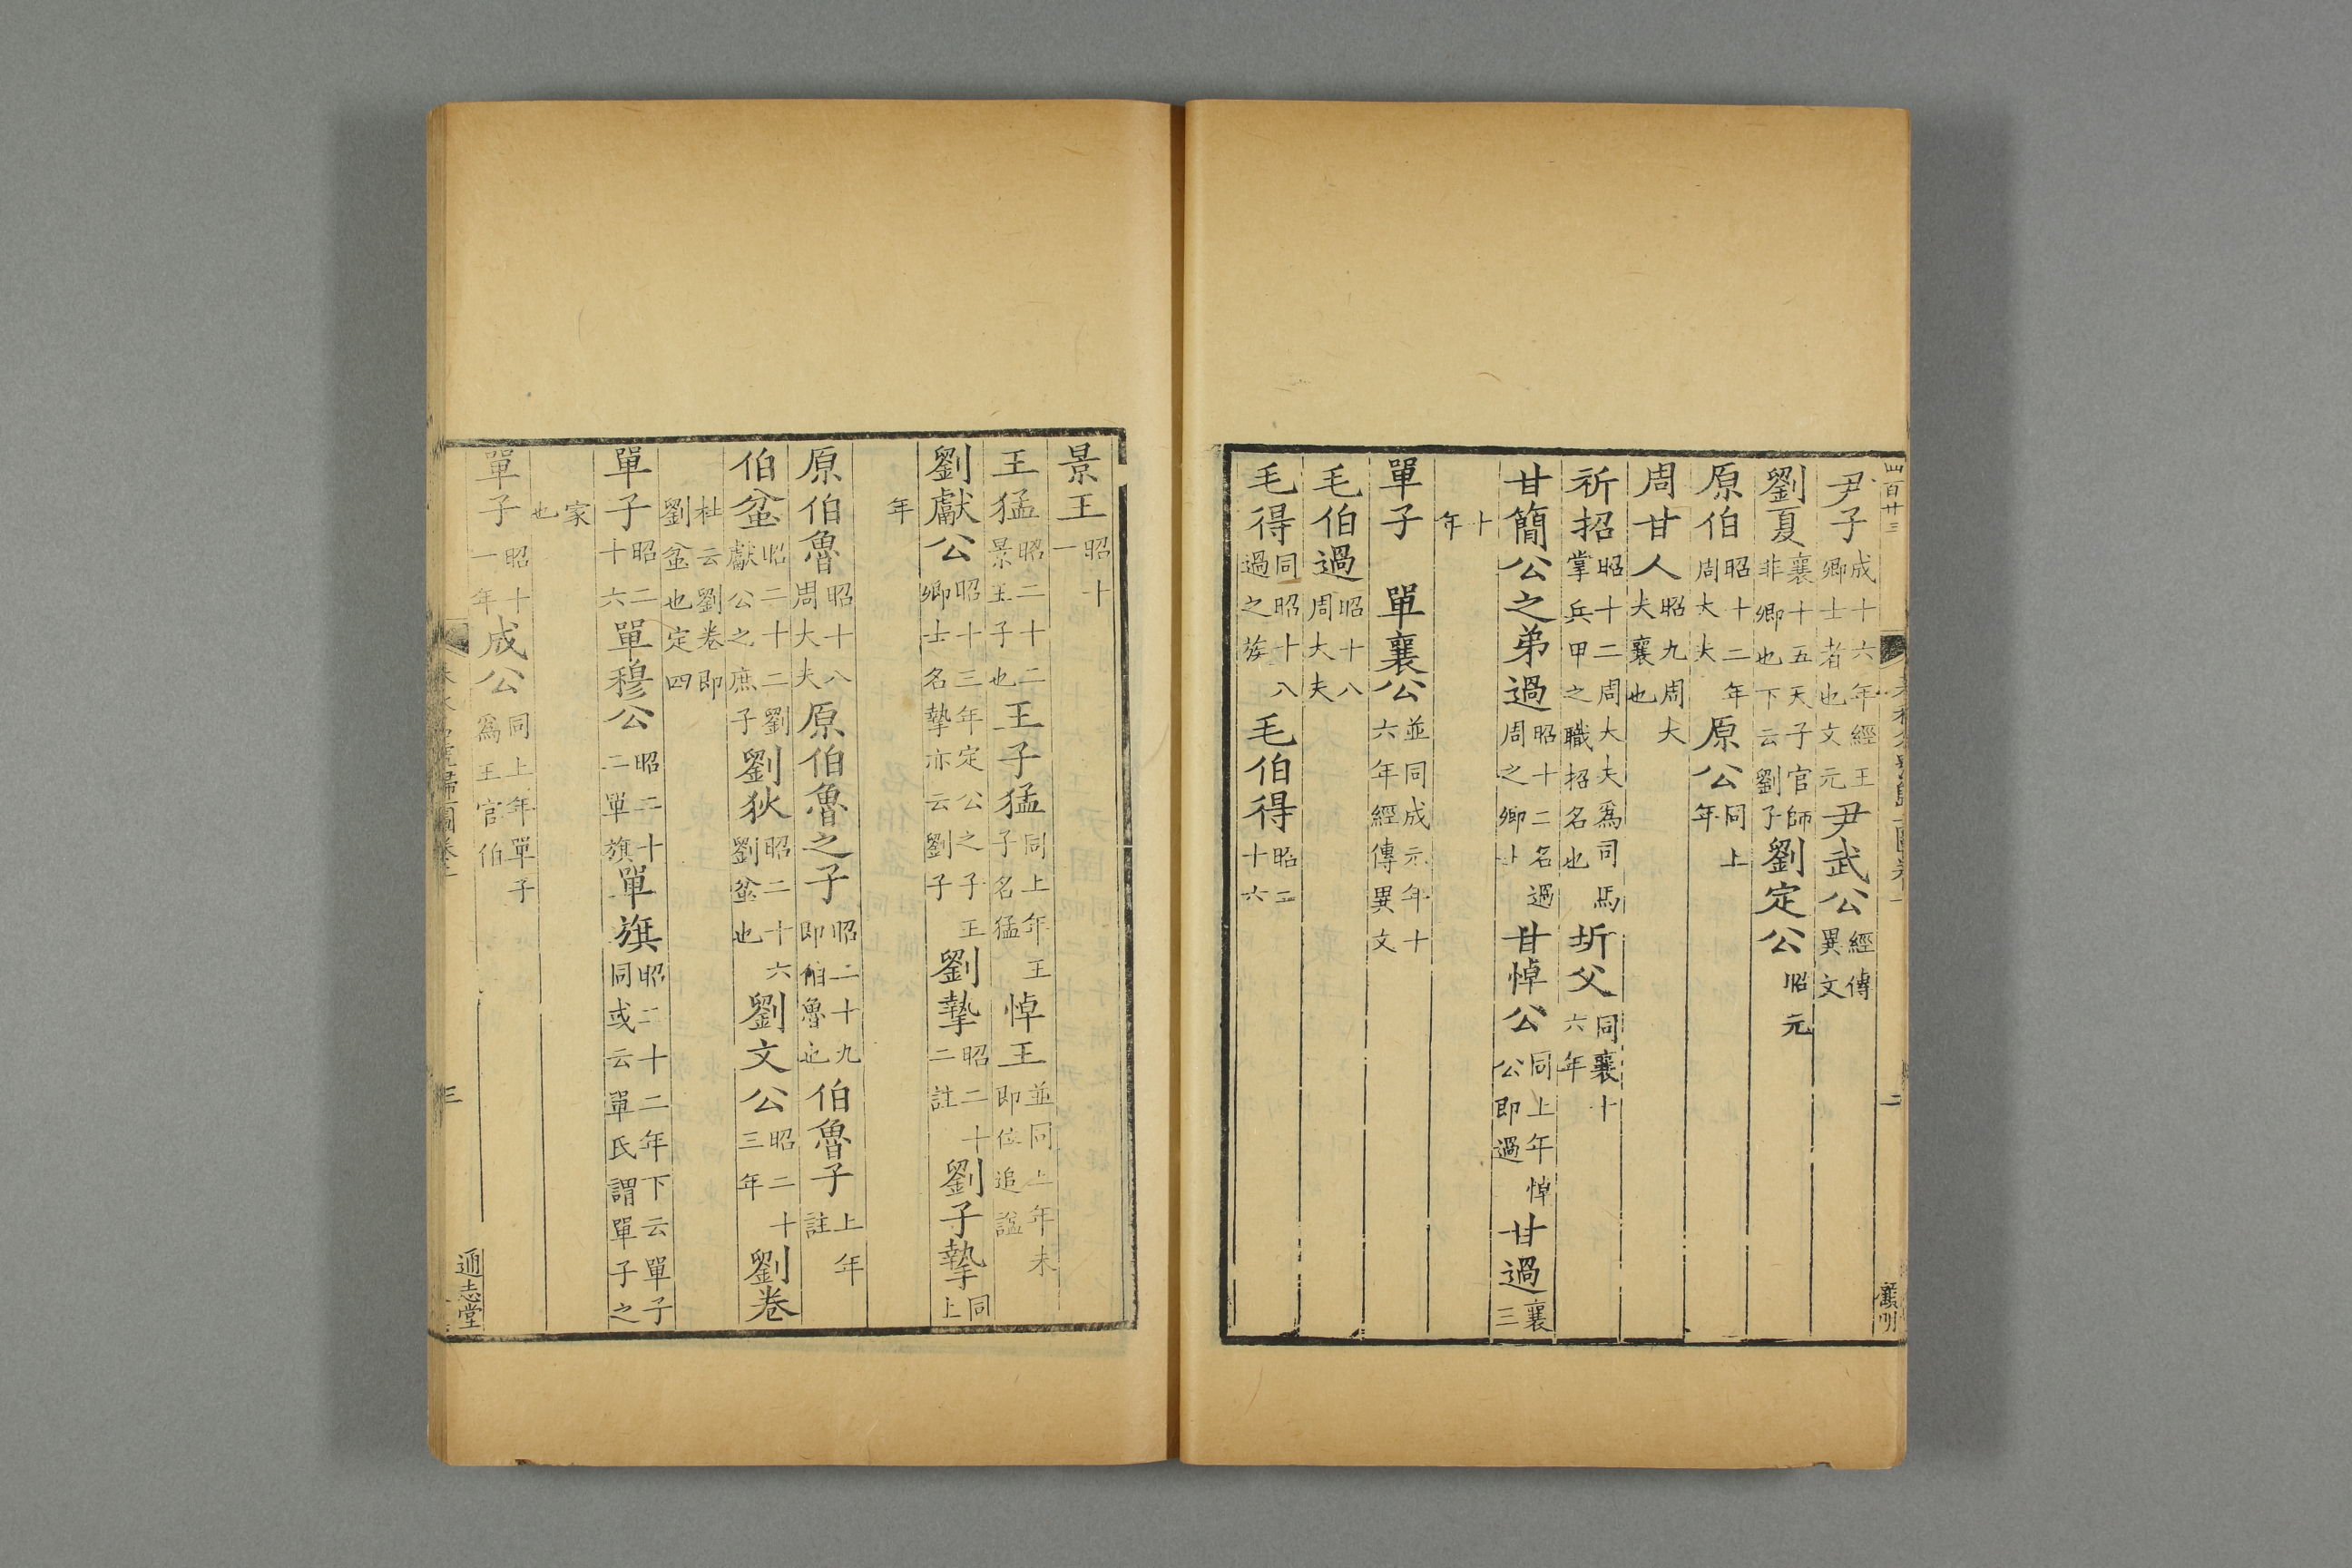 四百廿三
尹子成十六年經王卿士者也文元尹武公經傳異文
劉夏襄十五天子官師非卿也下云劉子劉定公昭元
原伯昭十二年周大夫原公同上年
周甘人昭九周大夫襄也
祈招昭十二周大夫爲司馬掌兵甲之職招名也圻父同襄十六年
甘簡公之弟過昭十二名過周之卿士甘悼公同上年悼公即過甘過襄三
十年
單子 單襄公並同成元年十六年經傳異文
毛伯過昭十八周大夫
毛得同昭十八過之族毛伯得昭二十六
二
景王昭十一
王猛昭二十二景王子也王子猛同上年王子名猛悼王並同上年未即位追諡
劉獻公昭十三年定公之子王卿士名摯亦云劉子劉摯昭二十二註劉子摯同上
年
原伯魯昭十八周大夫原伯魯之子昭二十九即伯魯也伯魯子上年註
伯蚠昭二十二劉獻公之庶子劉狄昭二十六劉蚠也劉文公昭二十三年劉卷
杜云劉卷即劉蚠也定四
單子昭二十六單穆公昭二十二單旗單旗昭二十二年下云單子同或云單氏謂單子之
家也
單子昭十一年成公同上年單子爲王官伯
三
通志堂